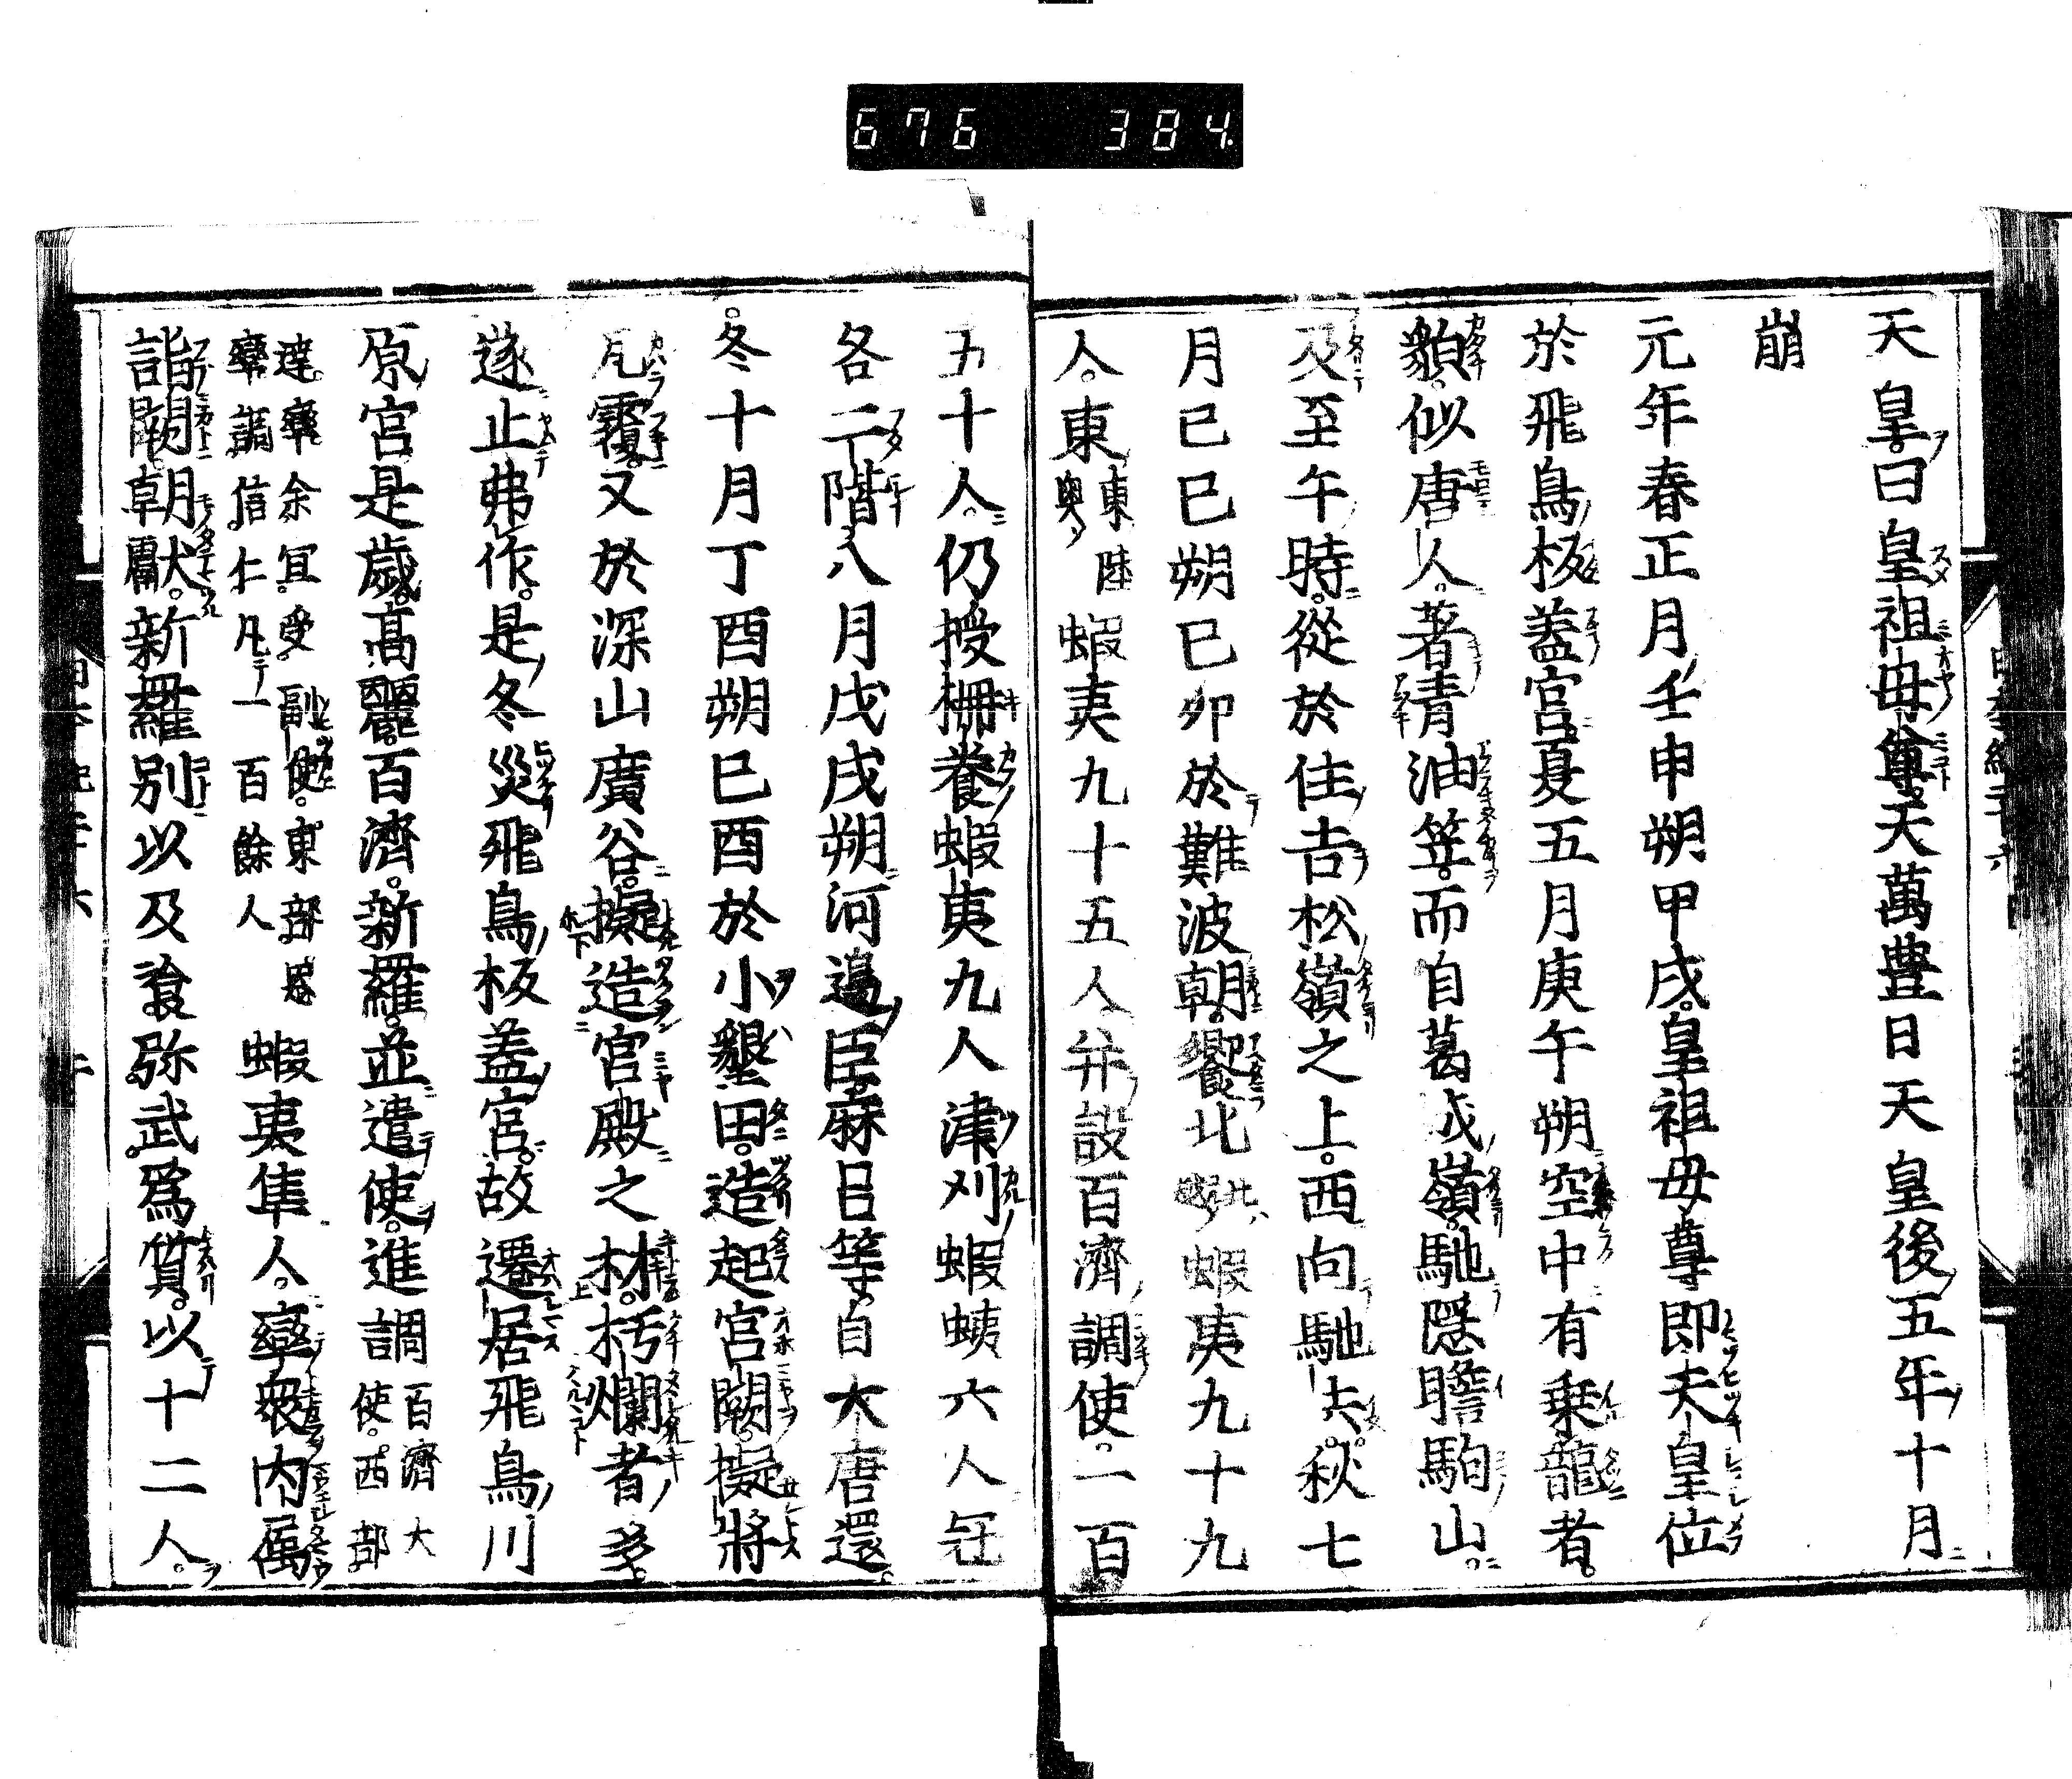 676 384.
天皇曰皇祖母尊天萬豊日天皇後五年十月
崩
元年春正月壬申朔甲戌皇祖母尊即天皇位
於飛鳥板蓋宮夏五月庚午朔空中有乗龍者
貌似唐人著青油笠而自葛城嶺馳隠膽駒山
及至午時從於住吉松嶺之上西向馳去秋七
月己巳朔己卯於難波朝饗北北蝦夷九十九
人東東陸奥蝦夷九十五人并設百濟調使一百
五十人仍授柵養蝦夷九人津刈蝦蛦六人冠
各二階八月戊戌朔河邉臣麻呂等自大唐還
冬十月丁酉朔己酉於小墾田造起宮闕擬將
瓦覆又於深山廣谷擬造宮殿之材朽爛者多
遂止弗作是冬災飛鳥板蓋宮故遷居飛鳥川
原宮是歳髙麗百濟新羅並遣使進調百濟大使西部
達率余宜受副使東部恩率調信仁凡一百餘人蝦夷隼人率衆内属
詣闕朝獻新羅別以及飡弥武爲質以十二人